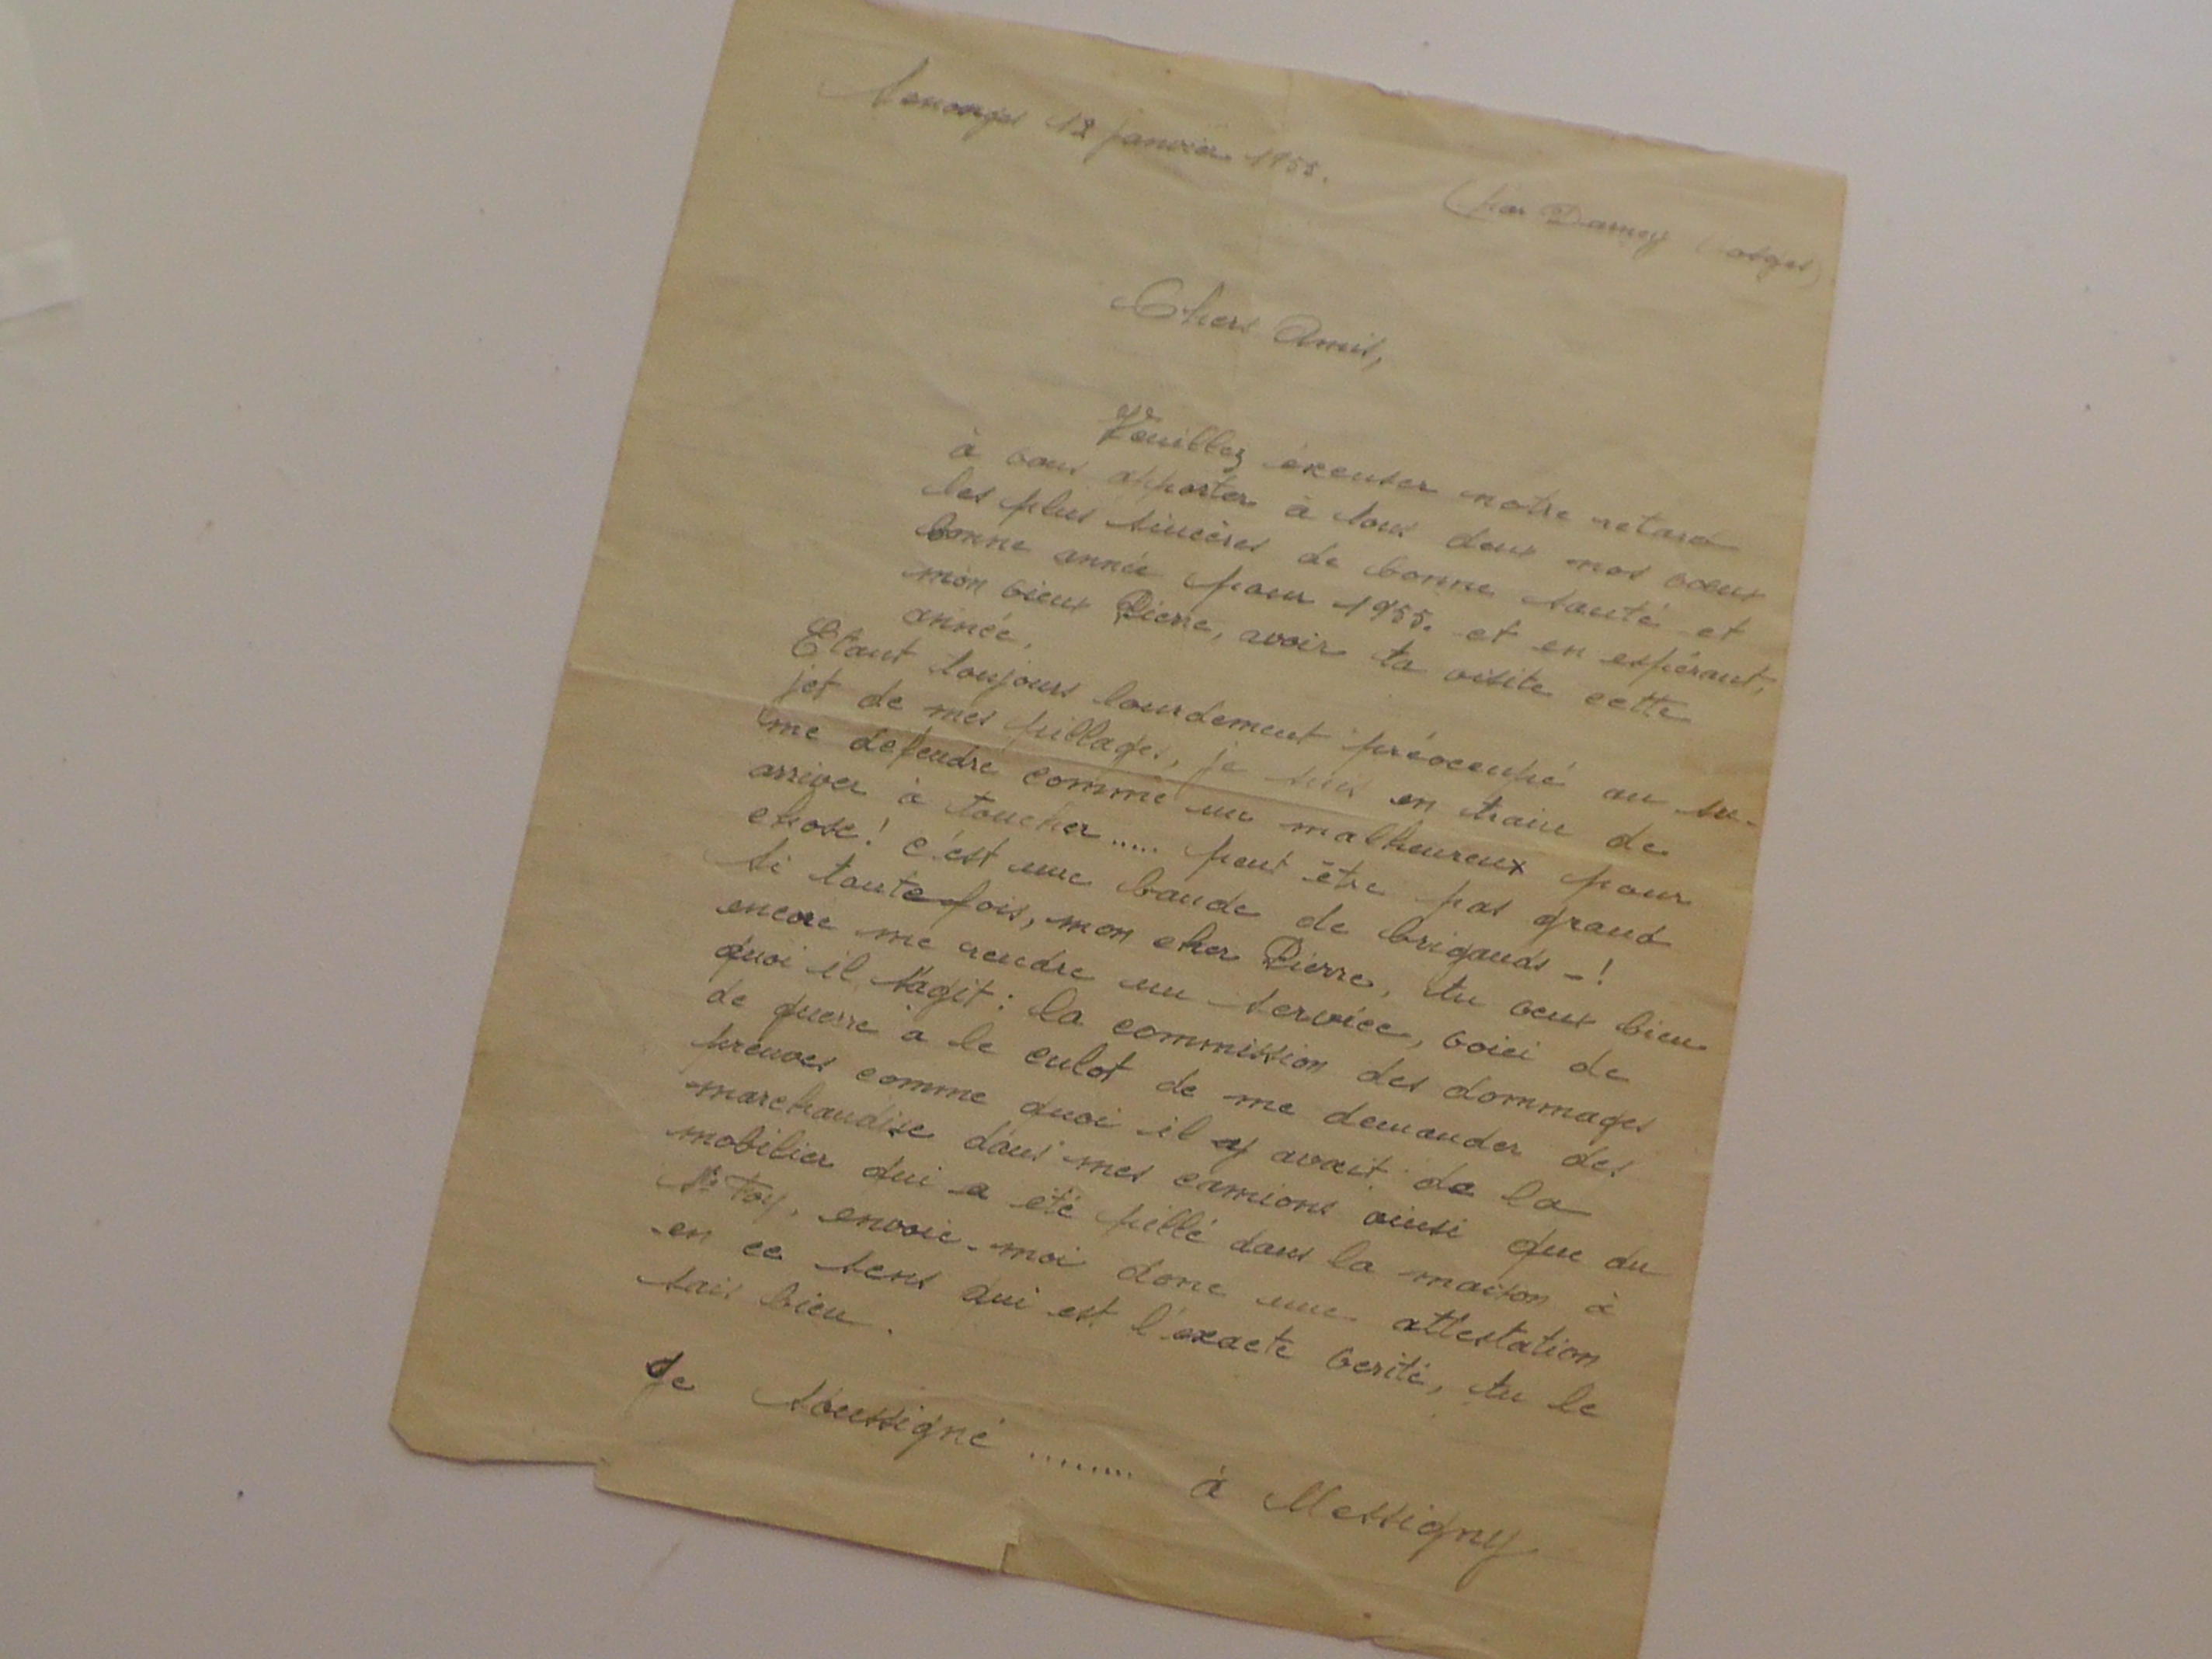 Senonges 12 janvier 1955.
(par Darney Vosges)
Chers Amis,
Veuillez éxcuser notre retard
à vous apporter à tous deux nos voeux
les plus sincères de bonne santé et
bonne année pour 1955. et en espérant,
mon vieux Pierre, avoir ta visite cette
année.
Etant toujours lourdement préoccupé au su-
jet de mes pillages, je suis en train de
me défendre comme un malheureux pour
arriver à toucher ..... peut être pas grand
chose! c'est une bande de brigands -!
Si toutefois, mon cher Pierre, tu veux bien
encore me rendre un service, voici de
quoi il s'agit: la commission des dommages
de guerre a le culot de me demander des
preuves comme quoi il y avait de la
marchandise dans mes camions ainsi que du
mobilier qui a été pillé dans la maison à
envoie-moi donc une attestation
en ce sens qui est l'exacte vérité, tu le
sais bien.
Je soussigné ........ à Messigny